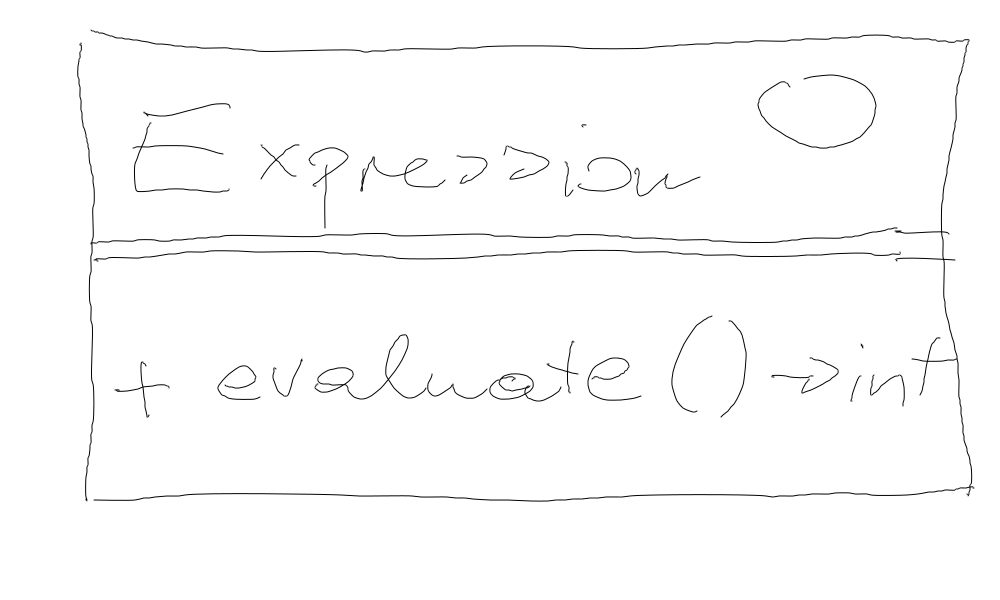 Expression
+ evaluate () → int